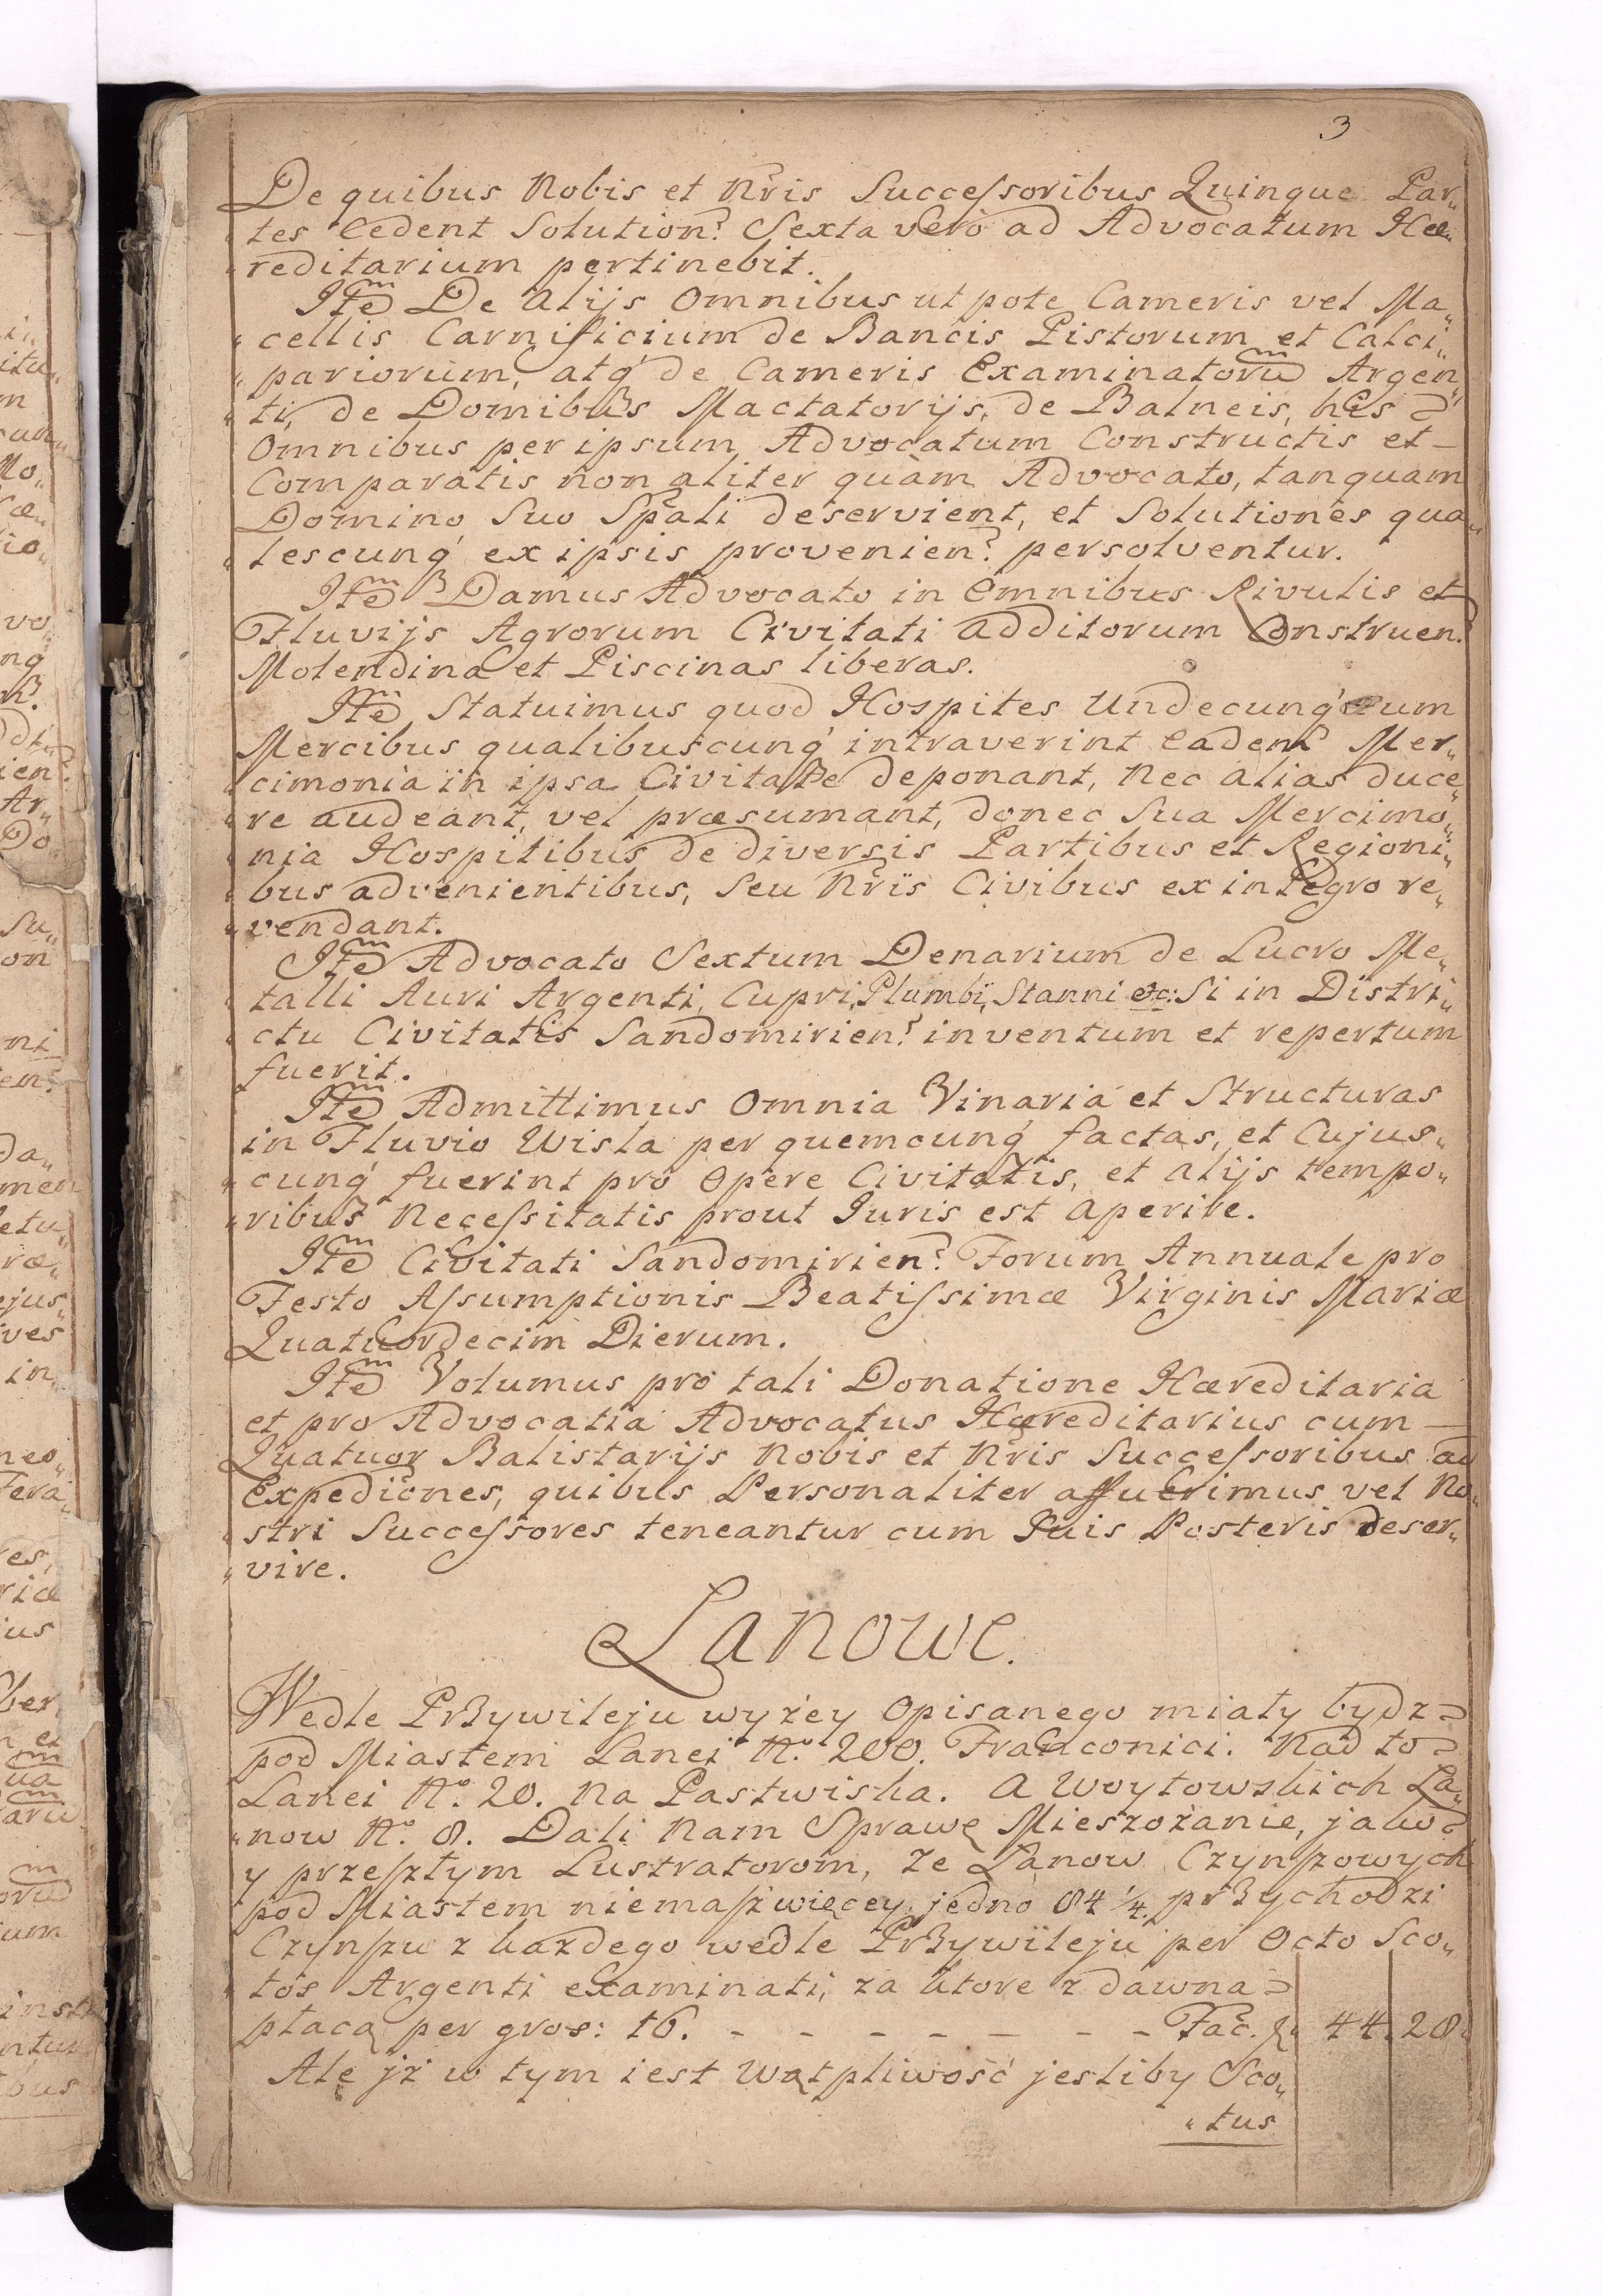 3
De quibus Nobis et Nr̃is Succeſsoribus Quinque Par„
„tes Cedent Solution? Sexta vero ad Advocatum Hæ„
„reditarium pertinebit.
Ite͂m De alijs Omnibus ut pote Cameris vel Ma„
„cellis Carnificium de Bancis Pistorum et Calci„
„pariorum, atq́ de Cameris Examinatoru͂m Argen„
„ti, de Domibus Mactatorijs, de Balneis, his =
Omnibus per ipsum Advocatum Constructis et —
Comparatis non aliter quàm Advocato, tanquam
Domino Suo Sp̃ali deservient, et Solutiones qua„
„lescunq́ ex ipsis provenien? persolventur.
Ite͂m Damus Advocato in Omnibus Rivulis et
Fluvijs Agrorum Civitati additorum Construen?
Molendina et Piscinas liberas.
Ite͂m Statuimus quod Hospites Undecunq́ cum
Mercibus qualibuscunq́ intraverint Eadem Mer„
„cimonia in ipsa Civitate deponant, Nec alias duce„
„re audeant, vel præsumant, donec Sua Mercimo„
„nia Hospitibus de diversis Partibus et Regioni„
„bus advenientibus, Seu Nr̃is Civibus ex integro re„
„vendant.
Ite͂m Advocato Sextum Denarium de Lucro Me„
„talli Auri Argenti, Cupri, Plumbi, Stanni etc: Si in Distri„
„ctu Civitatis Sandomirien? inventum et repertum
fuerit.
Ite͂m Admittimus Omnia Vinaria et Structuras
in Fluvio Wisla per quemcunq́ factas, et Cujus„
„cunq́ fuerint pro Opere Civitatis, et alijs tempo„
„ribus Neceſsitatis prout Juris est aperire.
Ite͂m Civitati Sandomirien? Forum Annuale pro
Festo Aſsumptionis Beatiſsimæ Virginis Mariæ
Quatuordecim Dierum.
Ite͂m Volumus pro tali Donatione Hæreditaria
et pro Advocatia Advocatus Hæreditarius cum —
Quatuor Balistarijs Nobis et Nr̃is Succeſsoribus ad
Expediõnes, quibus Personaliter affuerimus vel No„
„stri Succeſsores teneantur cum Suis Posteris deser„
„vire.
Lanowe.
Wedle Przywileju wyżey Opisanego miały bydz =
pod Miastem Lanei No. 200. Franconici. Nad to =
Lanei No. 20. Na Pastwiska. A Woytowskich La„
„now No. 8. Dali Nam Sprawę Mieszożanie, jako =
y przeſzłym Lustratorom, że Lanow Czynſzowych
pod Miastem niemaſz więcey, jedno 84 1/4. przychodzi
Czynſzu z każdego wedle Przywileju per Octo Sco„
„tos Argenti examinati, za ktore z dawna =
płacą per gros: 16. - - - - - - - Fac. fl. 44. 28.
Ale jż w tym iest Wątpliwość jesliby Sco„
„tus